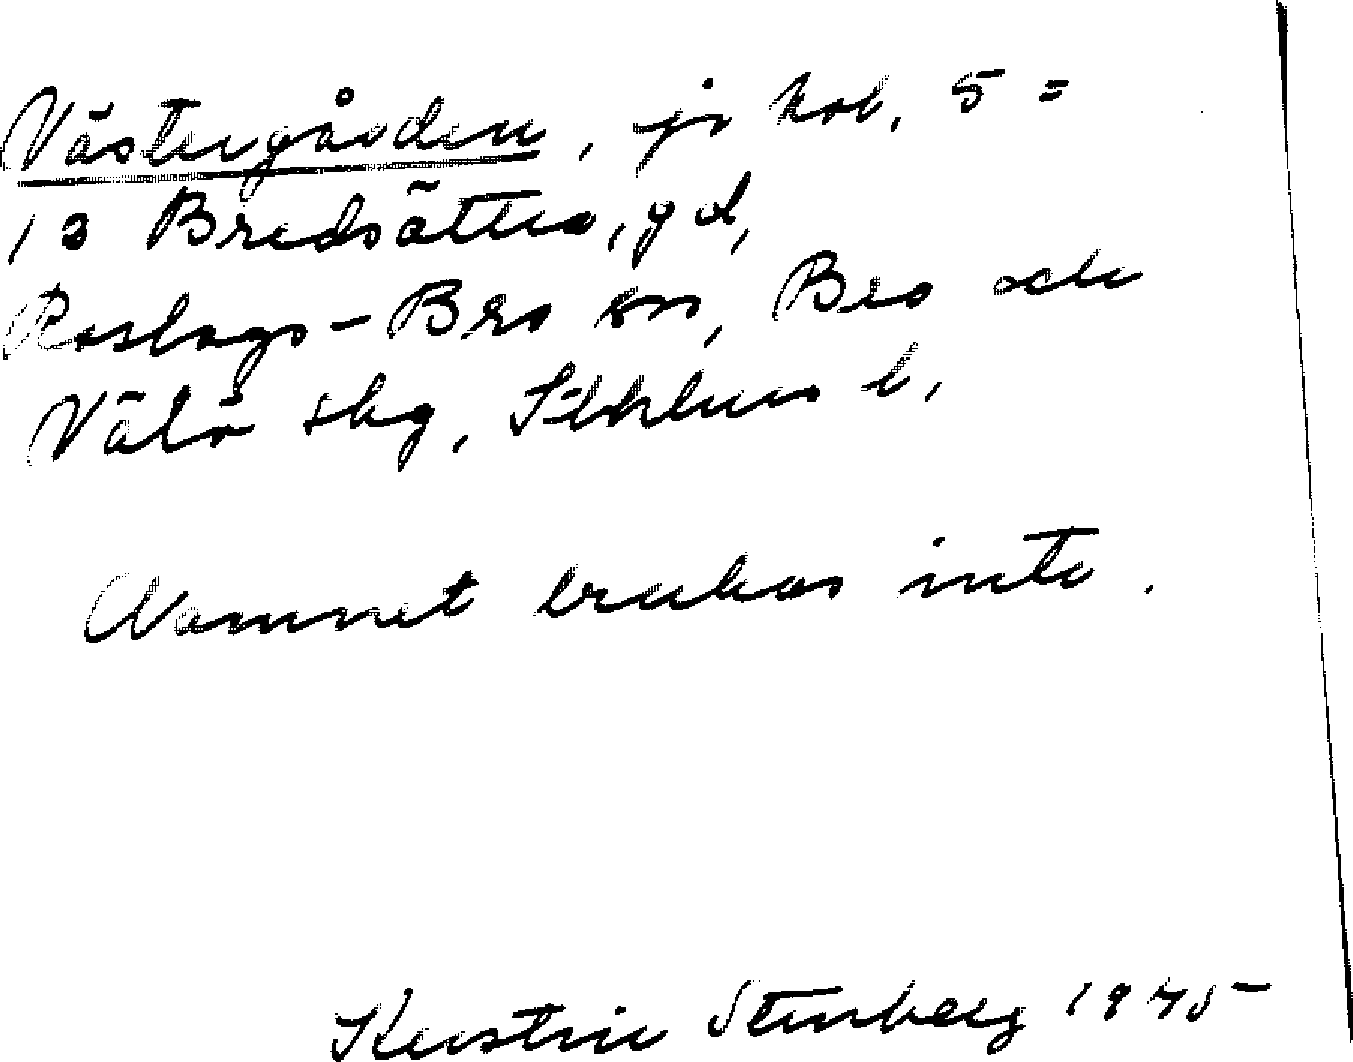 Västergården, jr kob, 5 =
13 Bredsättra, gd,
Roslags-Bro sn, Bro och
Vätö skg, Sthlms l,
Namnet brukas inte.
Kerstin Stenberg 1945